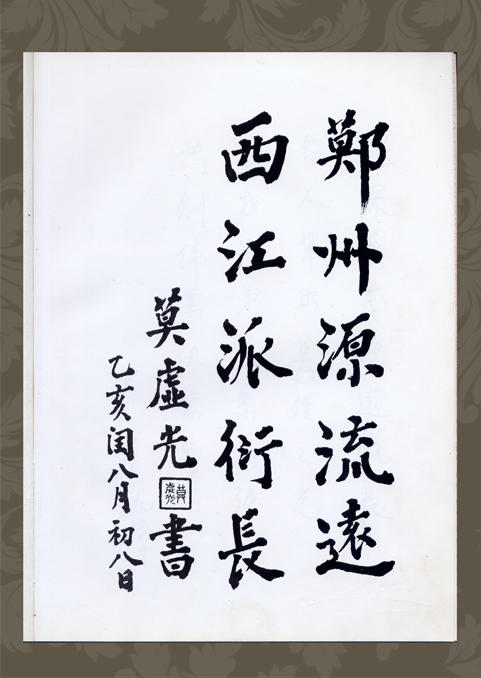 鄭州源流遠
西江派衍長
莫虛光書
乙亥闰八月初八日